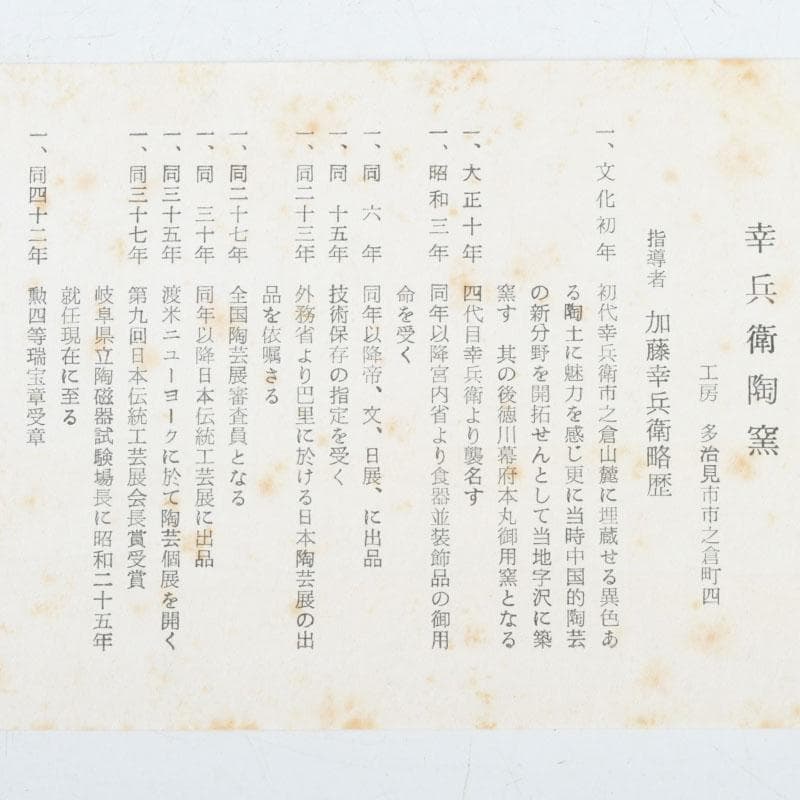 幸兵衛陶窯
工房 多治見市市之倉町四
指導者 加藤幸兵衛略歴
一、文化初年 初代幸兵衛市之倉山麓に埋蔵せる異色あ
る陶土に魅力を感じ更に当時中国的陶芸
の新分野を開拓せんとして当地字沢に築
窯す 其の後徳川幕府本丸御用窯となる
一、大正十年 四代目幸兵衛より襲名す
一、昭和三年 同年以降宮内省より食器並装飾品の御用
命を受く
一、同 六年 同年以降帝、文、日展、に出品
一、同 十五年 技術保存の指定を受く
一、同二十三年 外務省より巴里に於ける日本陶芸展の出
品を依嘱さる
一、同二十七年 全国陶芸展審査員となる
一、同 三十年 同年以降日本伝統工芸展に出品
一、同三十五年 渡米ニューヨークに於て陶芸個展を開く
一、同三十七年 第九回日本伝統工芸展会長賞受賞
岐阜県立陶磁器試験場長に昭和二十五年
就任現在に至る
一、同四十二年 勲四等瑞宝章受章